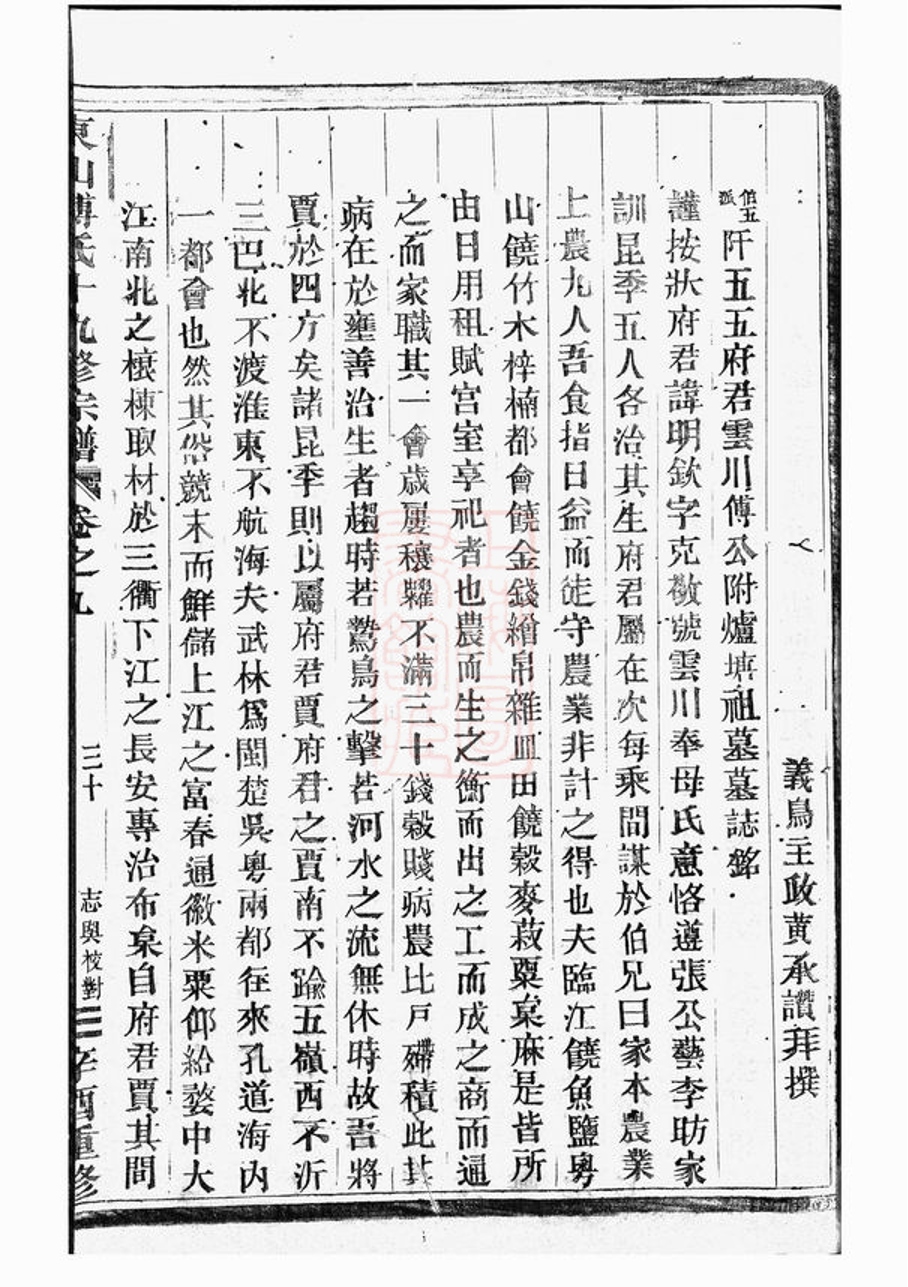 義烏主政黃承讚拜撰
伯五派阡五五府君雲川傅公附爐塘祖墓墓誌銘
謹按狀府君諱明欽字克敬號雲川奉母氏意恪遵張公藝李昉家
訓昆季五人各治其生府君屬在次每乘間謀於伯兄曰家本農業
上農九人吾食指日益而徒守農業非計之得也夫臨江饒魚鹽粵
山饒竹木梓楠都會饒金錢繒帛雜皿田饒穀麥菽粟枲麻是皆所
由日用租賦宮室享祀者也農而生之衡而出之工而成之商而通
之而家職其一會歲屢穰糶不滿三十錢穀賤病農比戶礴積此其
病在於壅善治生者趨時若鷙鳥之擊若河水之流無休時故吾將
賈於四方矣諸昆季則以屬府君賈府君之賈南不踰五嶺西不泝
三巴北不渡淮東不航海夫武林爲閩楚吳粵兩都往來孔道海內
一都會也然其俗競末而鮮儲上江之富春通徽米粟仰給婺中大
江南北之榱棟取材於三衢下江之長安專治布枲自府君賈其間
東山傅氏十九修宗譜 卷之九 三十 志與校對 辛酉重修